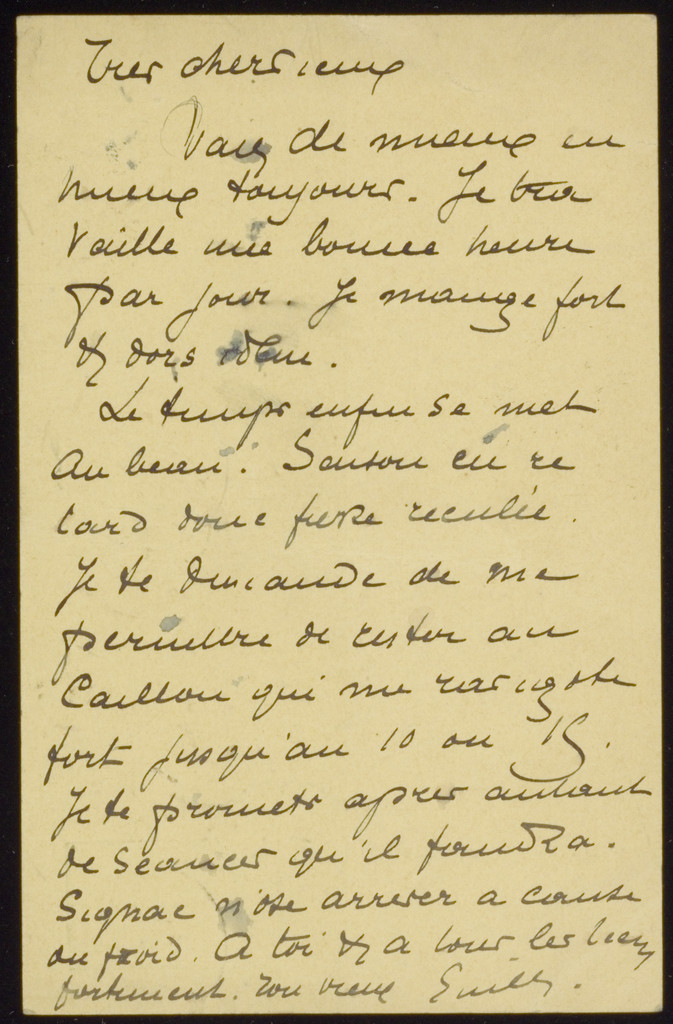 Tres cher vieux
Vais de mieux en
mieux toujours. Je tra
vaille une bonne heure
par jour. Je mange fort
& dors idem.
Le temps enfin se met
au beau. Saison en re
tard donc fuite reculée.
Je te demande de me
permettre de rester au
Caillou qui me ravigote
fort jusqu'au 10 ou 15.
Je te promets apres autant
de seances qu'il faudra.
Signac n'ose arriver a cause
du froid. A toi & a tous les tiens
fortement. Ton vieux